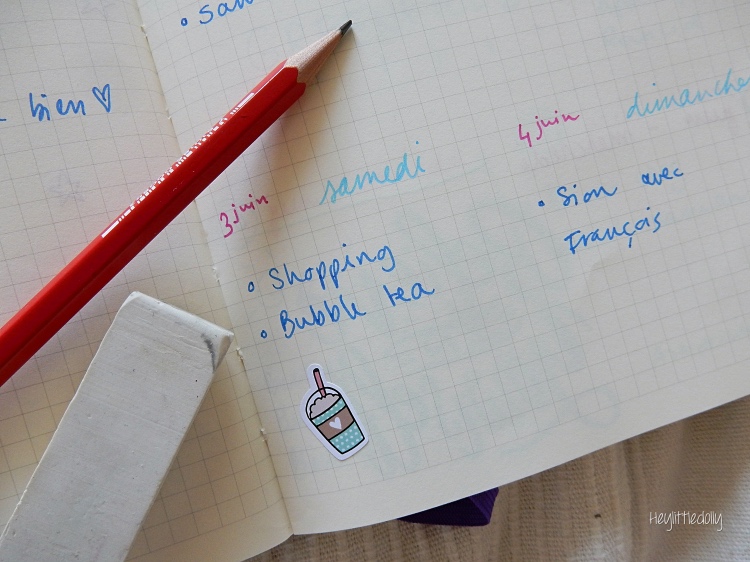 bien ♡
3 juin samedi
• Shopping
• Bubble tea
4 juin dimanche
• Sion avec
François
Heylittledolly